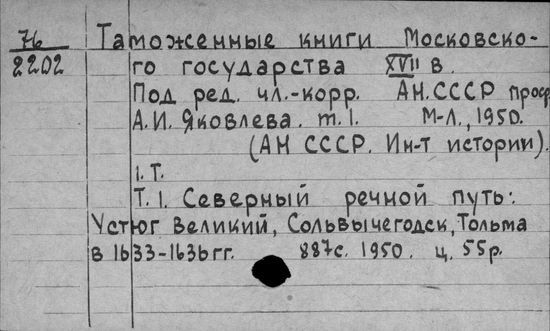 76
2202
Таможенные книги Московско-
го государства XVII в.
Под ред. чл.-корр. АН.СССР проф
А.И. Яковлева. т.1. М-Л., 1950.
(АН СССР. Ин-т истории).
1. Т.
Т. 1. Северный речной путь:
Устюг Великий, Сольвычегодск, Тольма
в 1633-1636гг. 887с. 1950. ц. 55р.